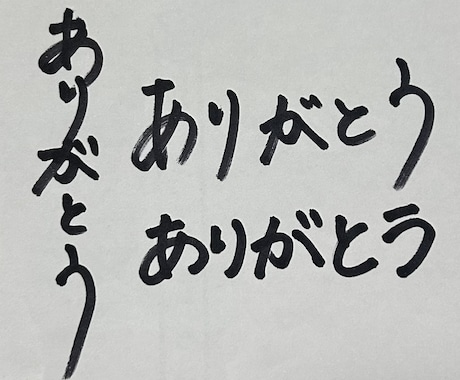 ありがとう
ありがとう
ありがとう